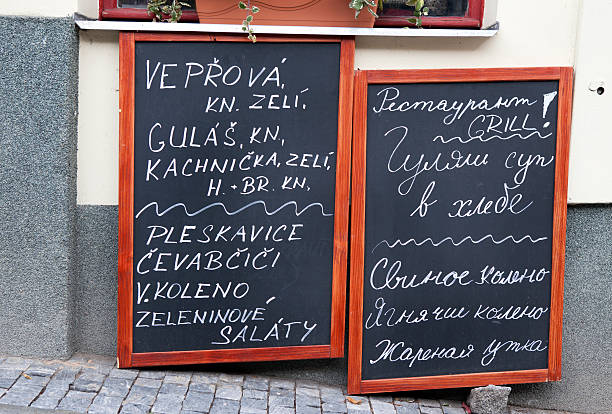 VEPŘOVÁ,
KN. ZELÍ,
GULÁŠ, KN,
KACHNIČKA, ZELÍ,
H. + BR. KN,
PLESKAVICE
ČEVABČÍČI
V. KOLENO
ZELENINOVÉ
SALÁTY
Рестаурант!
GRILL
Гуляш суп
в хлебе
Свиное колено
Ягнячие колено
Жареная утка